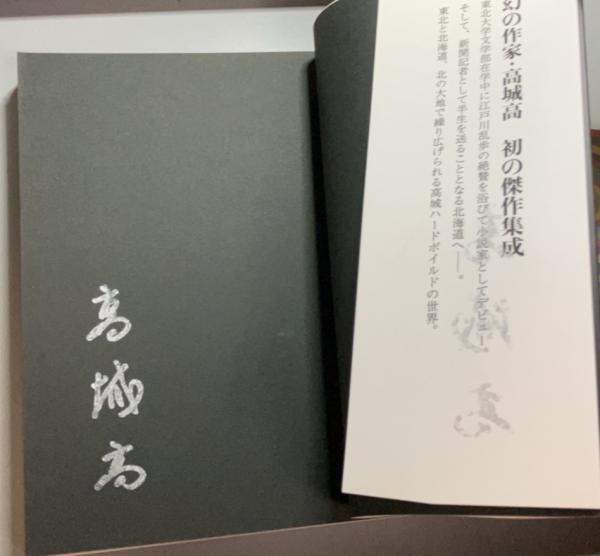 幻の作家・高城高 初の傑作集成
東北大学文学部在学中に江戸川乱歩の絶賛を浴びて小説家としてデビュー
そして、新聞記者として半生を送ることとなる北海道へ――。
東北と北海道、北の大地で繰り広げられる高城ハードボイルドの世界。
高城高